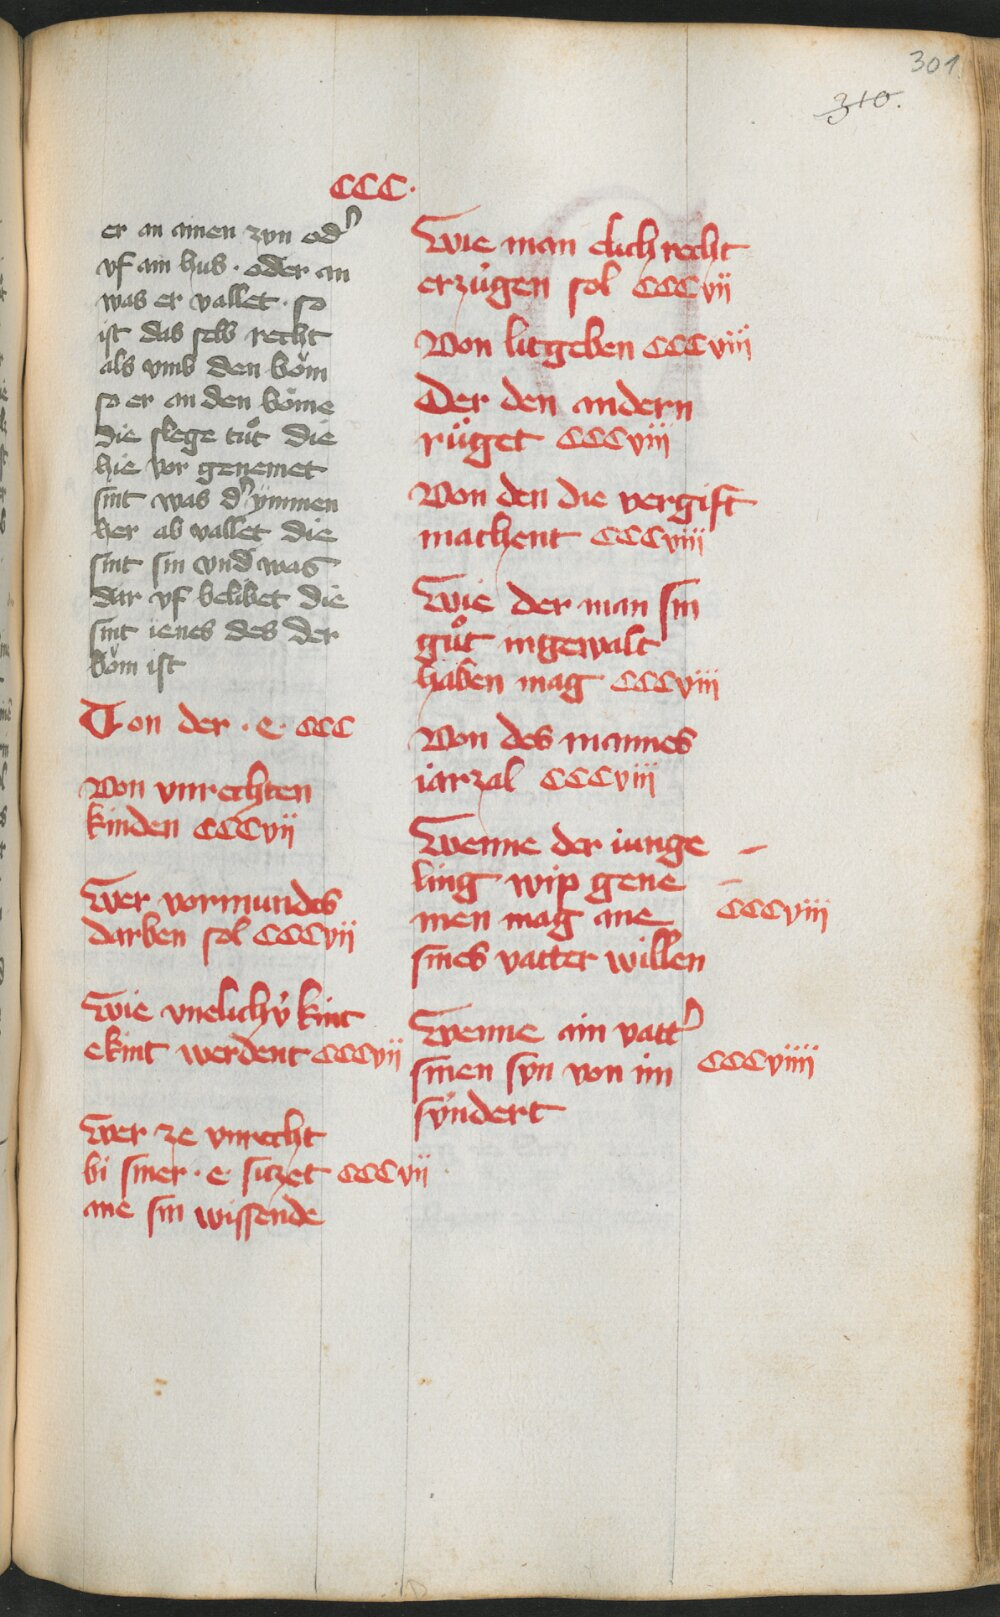 301
310.
CCC.
er an ainen zvn od'
vf ain hus · oder an
was er vallet · so
ist das selb recht
als vmb den bǒm
so er an den bome
die slege tuͦt die
hie vor genemet
sint was d' ymmen
her ab vallet die
sint sin vnd was
dar vf belibet die
sint ienes des der
bǒm ist
Von der · e · CCC
Von vnrechten
kinden CCCvij
Wer vormundes
darben sol CCCvij
Wie vnelichv́ kint
ekint werdent CCCvij
Wer ze vnrecht
bi siner · e · sitzet CCCvij
ane sin wissende
Wie man elich recht
erzúgen sol CCCvij
Von litgeben CCCviij
Der den andern
rüget CCCviij
Von den die vergift
machent CCCviij
Wie der man sin
guͦt ingewalt
haben mag CCCviij
Von des mannes
iarzal CCCviij
Wenne der iunge
ling wip gene
men mag ane CCCviij
sines vatter willen
Wenne ain vatt'
sinen svn von im CCCviiij
sv́ndert